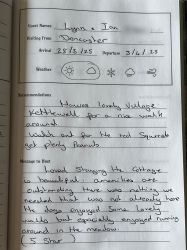 Guest Names Lynn + Ian
Visiting From Doncaster
Arrival 28/3/25 Departure 3/4/25
Weather
Recommendations
Hawes lovely village
Kettlewell for a nice walk
around
Watch out for the red Squirrels
get plenty Peanuts
Message to Host
Loved Staying the Cottage
is beautiful. amenities are
outstanding there was nothing we
needed that was not already here
the dogs enjoyed some lovely
walks but especially enjoyed running
around in the meadow.
(5 Star)